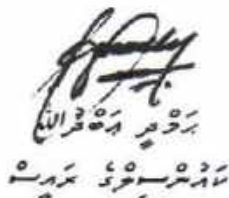 ޙަމްދީ ޢަބްދުﷲ
ކައުންސިލްގެ ރައީސް